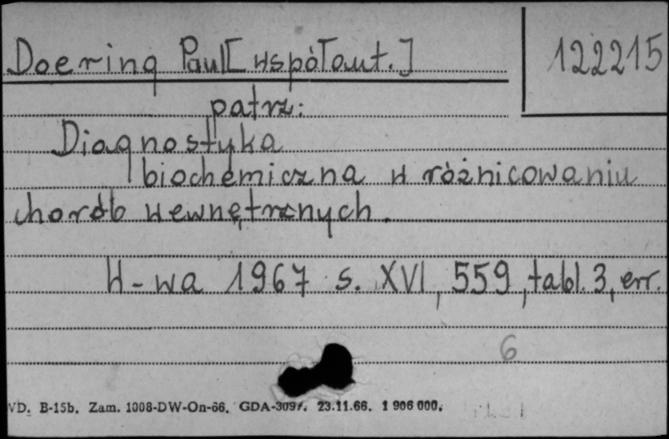 Doering Paul [współaut.] 122215
patrz:
Diagnostyka
biochemiczna w różnicowaniu
chorób wewnętrznych.
W-wa 1967 s. XVI, 559, tabl. 3, err.
6
VD. B-15b. Zam. 1008-DW-On-66. GDA-309/. 23.11.66. 1 906 000.